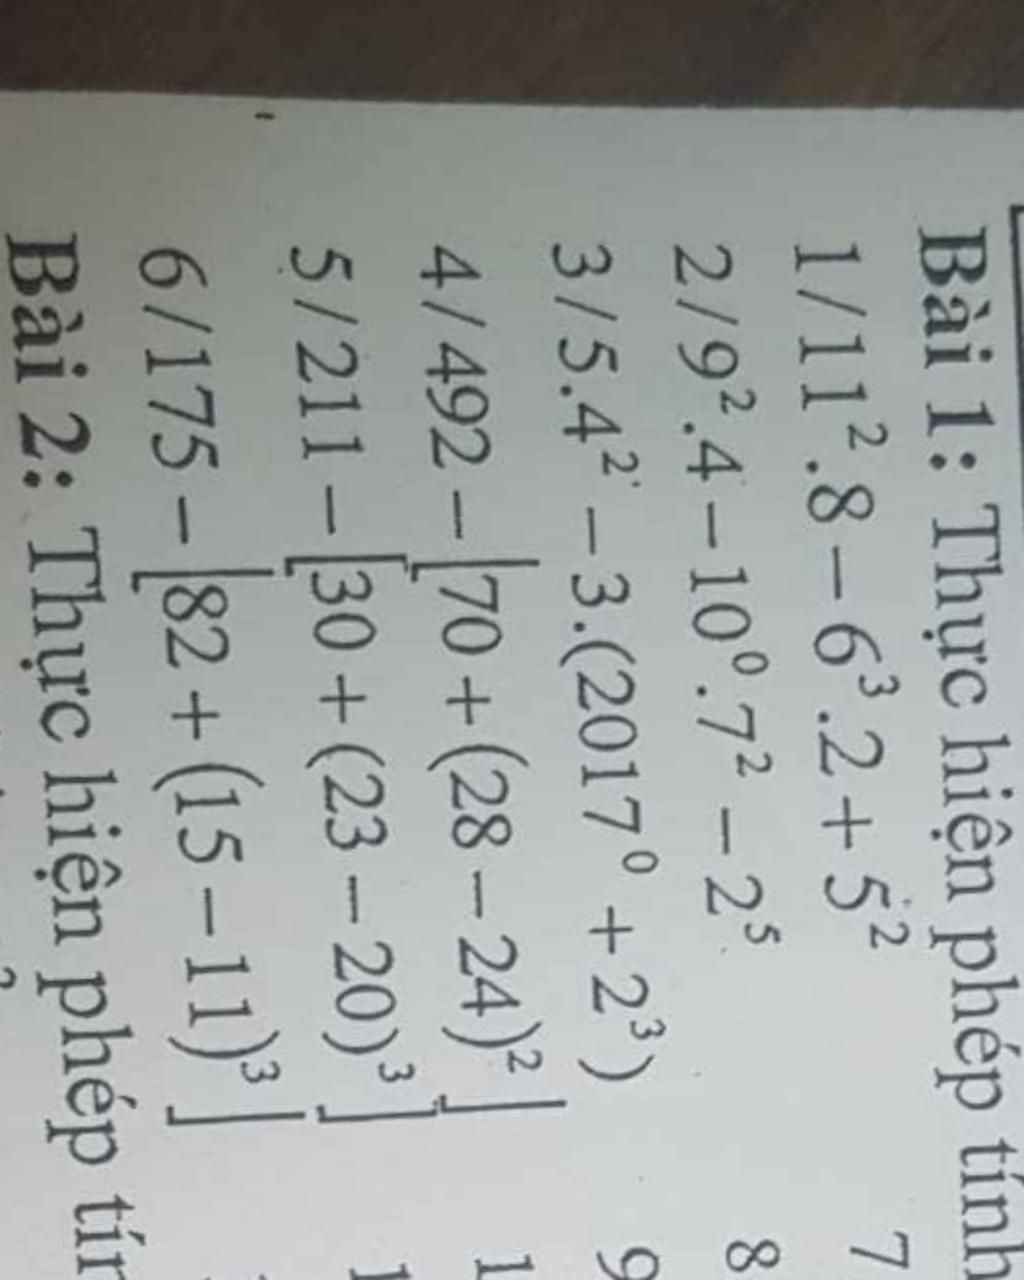 Bài 1: Thực hiện phép tính
1/11².8 − 6³.2 + 5²
7
2/9².4 − 10⁰.7² − 2⁵
8
3/5.4² − 3.(2017⁰ + 2³)
9
4/492 − [70 + (28 − 24)²]
1
5/211 − [30 + (23 − 20)³]
1
6/175 − [82 + (15 − 11)³]
Bài 2: Thực hiện phép